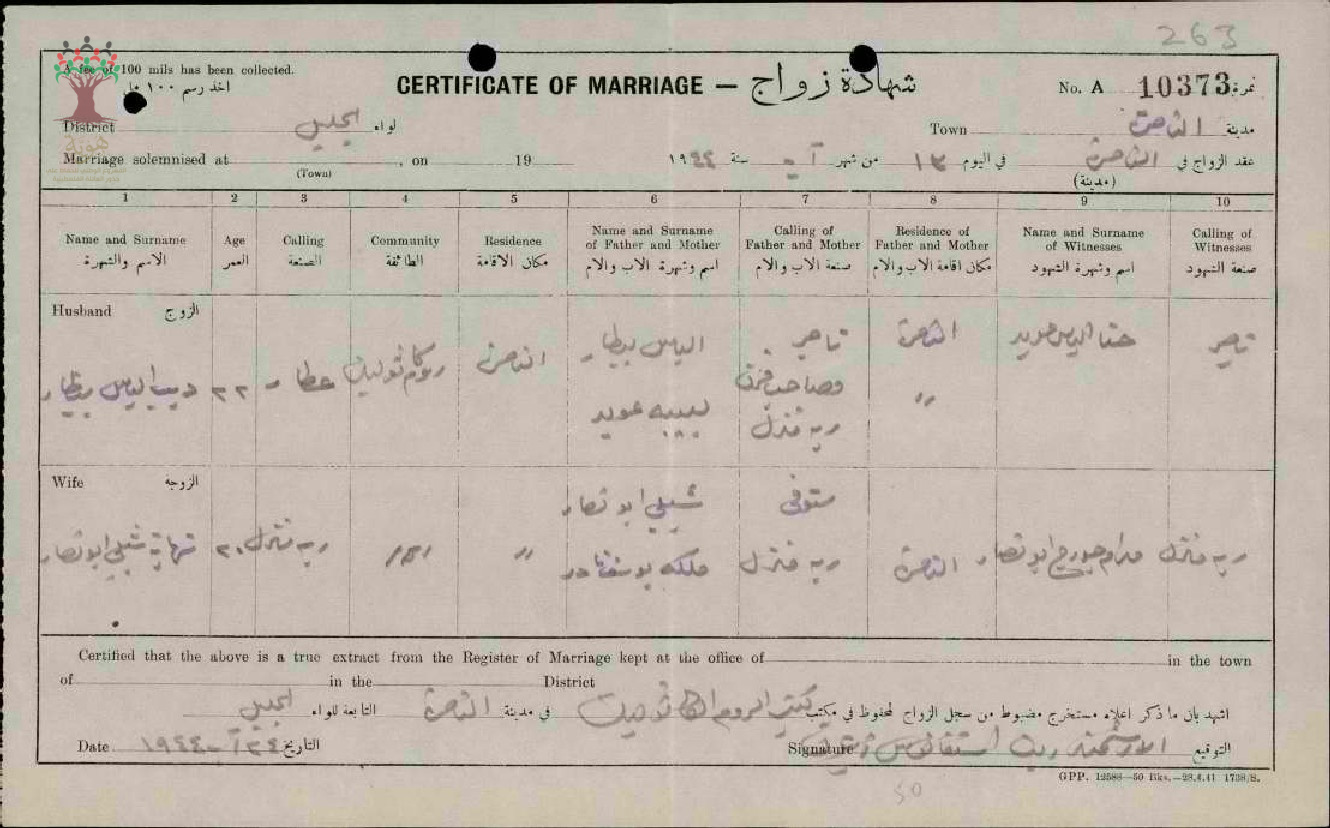 263
A fee of 100 mils has been collected.
اخذ رسم ١٠٠ ملا
CERTIFICATE OF MARRIAGE — شهادة زواج
No. A 10373 نمرة
District الجليل لواء
Town الناصرة مدينة
هوية
Marriage solemnised at , on 19
(Town)
عقد الزواج في الناصرة في اليوم ١٣ من شهر آب سنة ١٩٤٤
(مدينة)
1 2 3 4 5 6 7 8 9 10
Name and Surname الاسم والشهرة
Age العمر
Calling الصنعة
Community الطائفة
Residence مكان الاقامة
Name and Surname of Father and Mother اسم وشهرة الاب والام
Calling of Father and Mother صنعة الاب والام
Residence of Father and Mother مكان اقامة الاب والام
Name and Surname of Witnesses اسم وشهرة الشهود
Calling of Witnesses صنعة الشهود
Husband الزوج
ديب الياس بيطار
٢٢
عطار
روم كاثوليك
الناصرة
الياس بيطار
لبيبه عويد
تاجر
وصاحب فرن
ربة منزل
الناصرة
〃
حنا الياس
تاجر
Wife الزوجة
شبلي ابو نصار
٢٠
ربة منزل
〃
〃
شبلي ابو نصار
ملكه يوسف
متوفي
ربة منزل
الناصرة
مدام جورج ابو نصار
ربة منزل
Certified that the above is a true extract from the Register of Marriage kept at the office of in the town
of in the District
اشهد بان ما ذكر اعلاه مستخرج مضبوط من سجل الزواج المحفوظ في مكتب الروم الكاثوليك في مدينة الناصرة التابعة للواء الجليل
Date ١٩٤٤ - آب ٢٤ التاريخ
Signature الارشمندريت التوقيع
GPP. 12588—50 Bks.—28.4.41 1758/S.
50